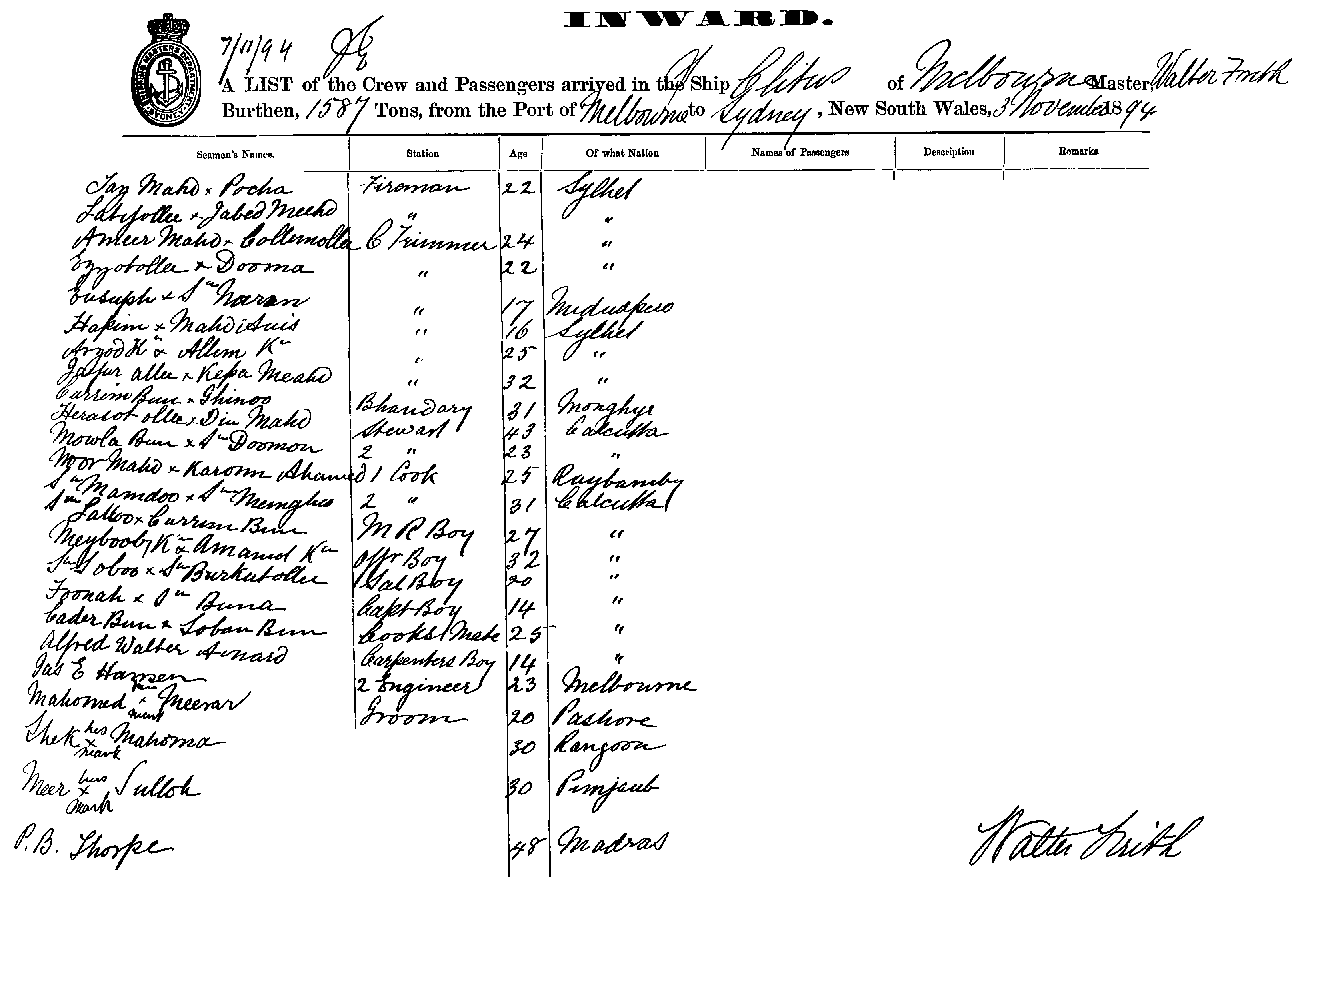 INWARD.
7/11/94
A LIST of the Crew and Passengers arrived in the Ship Clitus of Melbourne Master, Walter Frith
Burthen, 1587 Tons, from the Port of Melbourne to Sydney, New South Wales, 3 November 1894
Seamen's Names. Station Age Of what Nation Names of Passengers Description Remarks
Jan Mahd x Pocha Fireman 22 Sylhet
x Jabed Meahd " "
Ameer Mahd x Collemolla C Trimmer 24 "
Ezzotollee x Dooma " 22 "
Eusuph x Sk Naran " 17
Hakim x Mahd " 16 Sylhet
x Allim Kn " 25 "
Jaffur allee x Kepa Meahd " 32 "
Currim Bux x Ghinoo Bhandary 31 Monghyr
Herasot ollee x Din Mahd Stewart 43 Calcutta
Mowla Bux x Sk Doomon 2 " 23 "
Noor Mahd x Karomn Ahamed 1 Cook 25
Sk Mamdoo x Sk Menghee 2 " 31 Calcutta
x Currim Bux M R Boy 27 "
Kn x Amanud Kn Offr Boy 32 "
Sk Soboo x Sk Burkutollee Sal Boy 20 "
Foonah x Sk Buna Capt Boy 14 "
Cader Bux x Soban Bux Cooks Mate 25 "
Alfred Walter Carpenters Boy 14 "
Jas E Hansen 2 Engineer 23 Melbourne
Mahomed x Meerar Groom 20 Pashore
Shek his x mark Mahoma 30 Rangoon
Meer his x mark Sulloh 30 Punjaub
P. B. Thorpe 48 Madras
Walter Frith